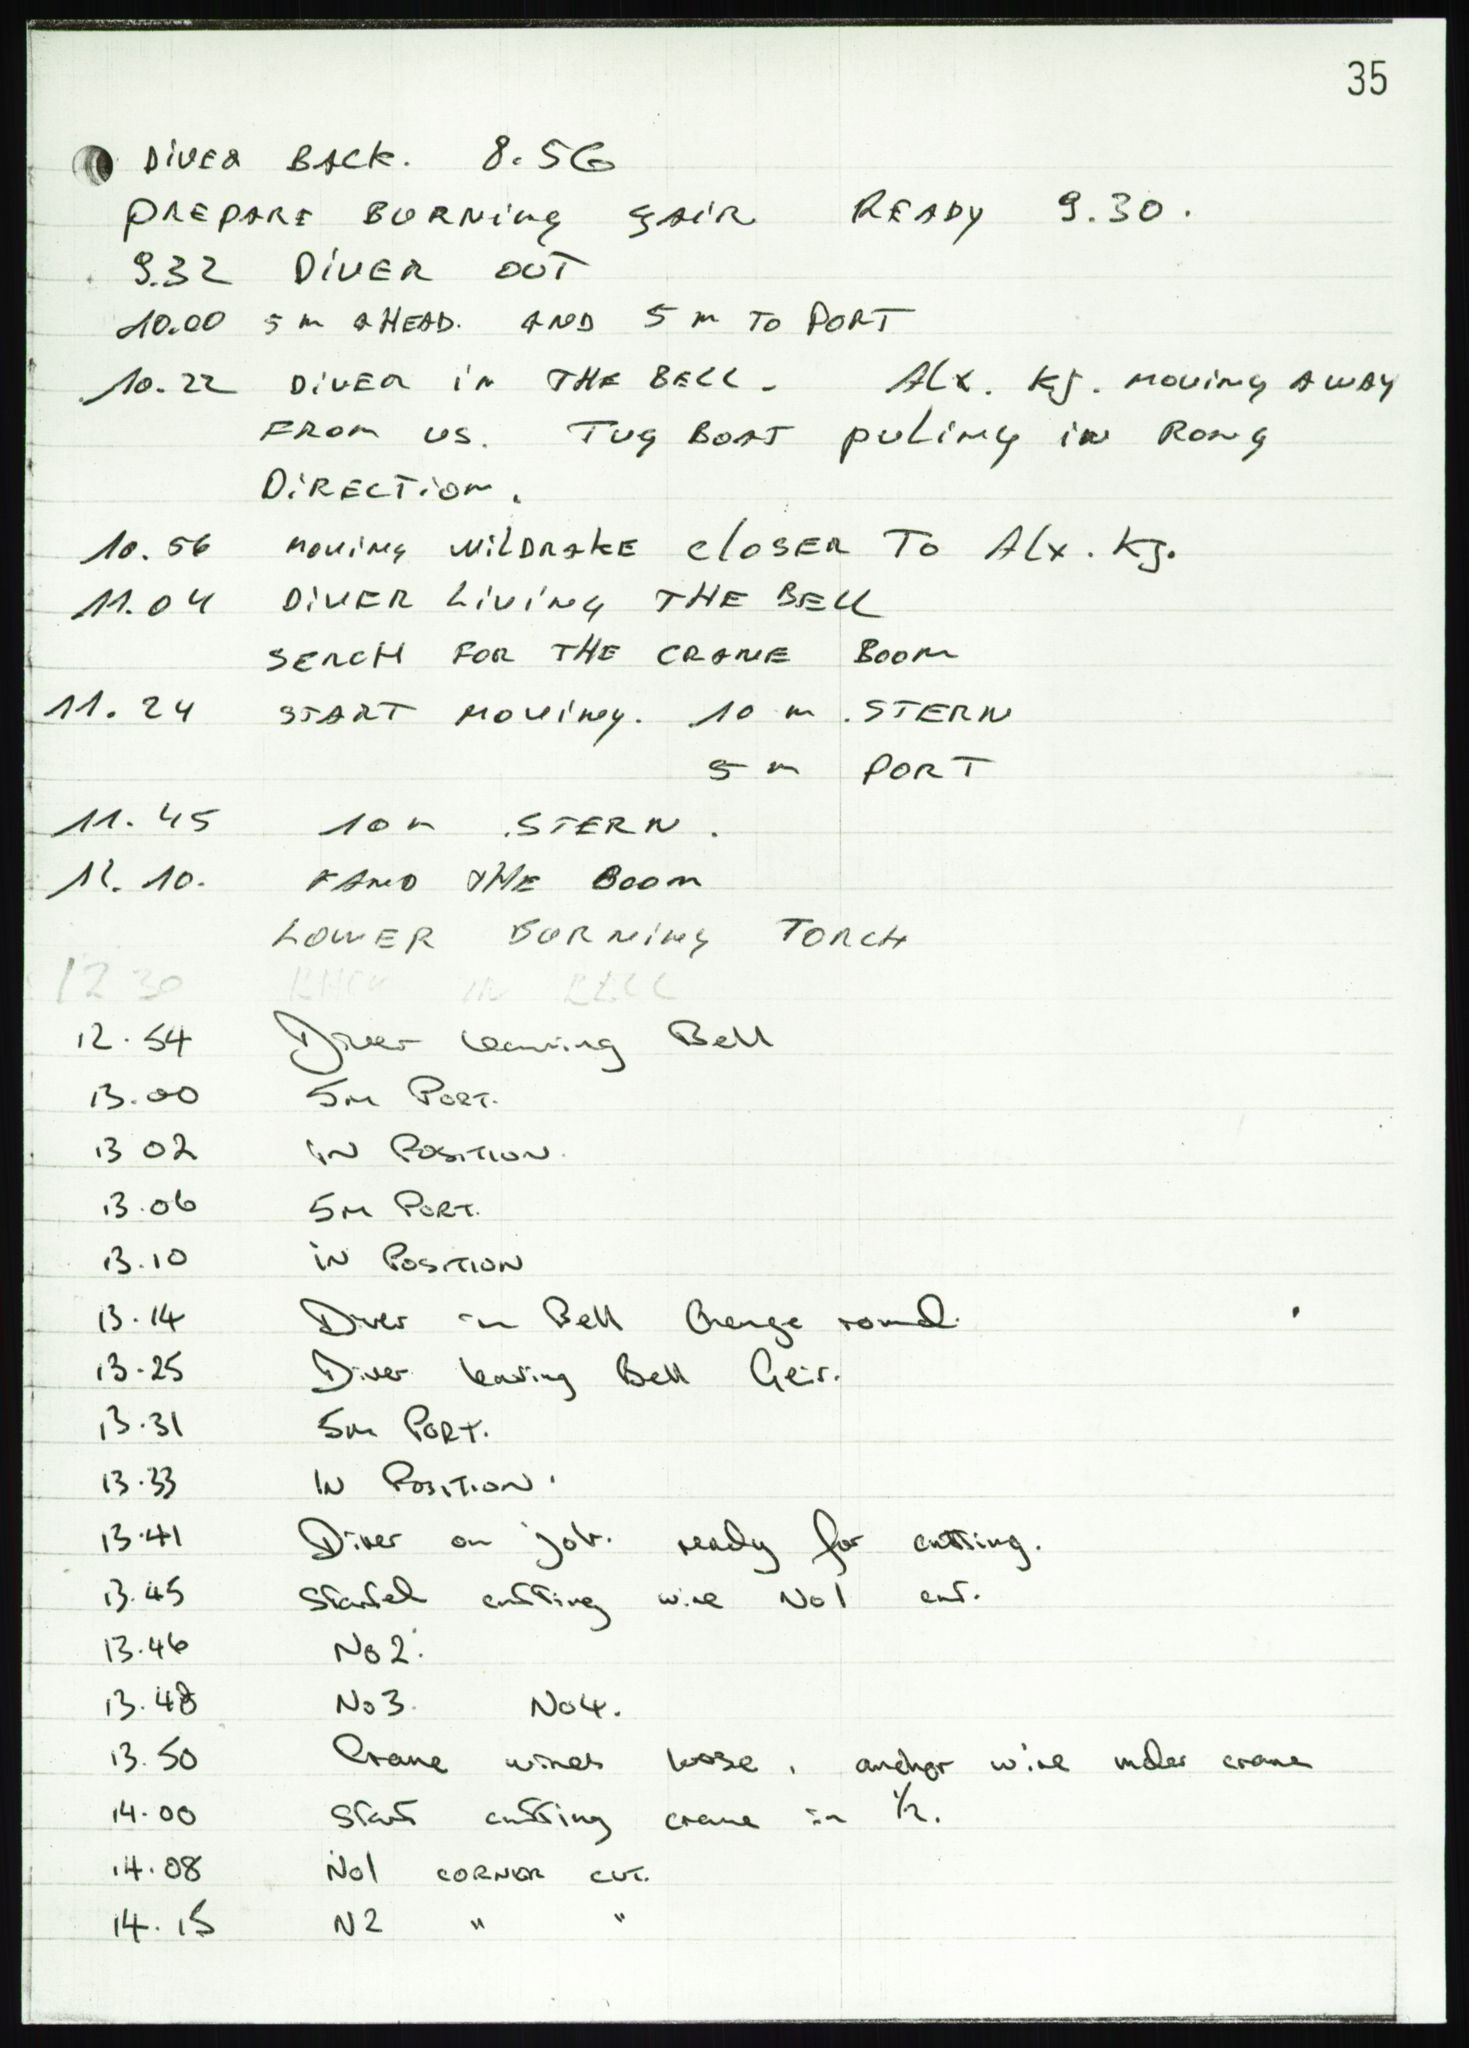 35
DIVER BACK. 8.56
PREPARE BURNING GAIR READY 9.30.
9.32 DIVER OUT
10.00 5 m AHEAD. AND 5 m TO PORT
10.22 DIVER IN THE BELL. ALX. KJ. MOVING AWAY
FROM US. TUG BOAT PULING IN RONG
DIRECTION.
10.56 MOVING WILDRAKE CLOSER TO ALX. KJ.
11.04 DIVER LIVING THE BELL
SERCH FOR THE CRANE BOOM
11.24 START MOVING. 10 m STERN
5 m PORT
11.45 10 m STERN.
12.10. FAND THE BOOM
LOWER BURNING TORCH
12 30 BACK IN BELL
12.54 Diver leaving Bell
13.00 5m PORT.
13 02 IN POSITION.
13.06 5m PORT.
13.10 IN POSITION
13.14 Diver in Bell Change round.
13.25 Diver leaving Bell Geir.
13.31 5m PORT.
13.33 IN POSITION.
13.41 Diver on job. ready for cutting.
13.45 Started cutting wire No1 cut.
13.46 No2.
13.48 No3. No4.
13.50 Crane wires loose, anchor wire under crane
14.00 Start cutting crane in 1/2.
14.08 No1 CORNER CUT.
14.15 N2 " "